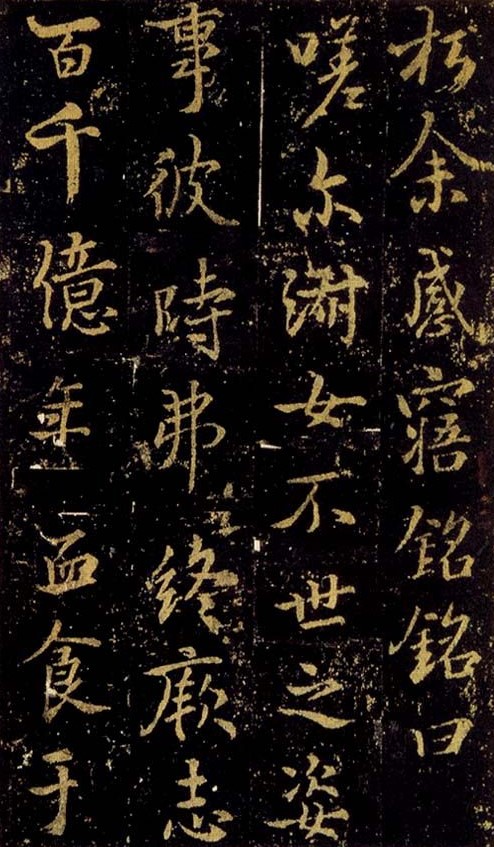 於余感寤銘銘曰
嗟尔淑女不世之姿
事彼時弗終厥志
百千億年血食于